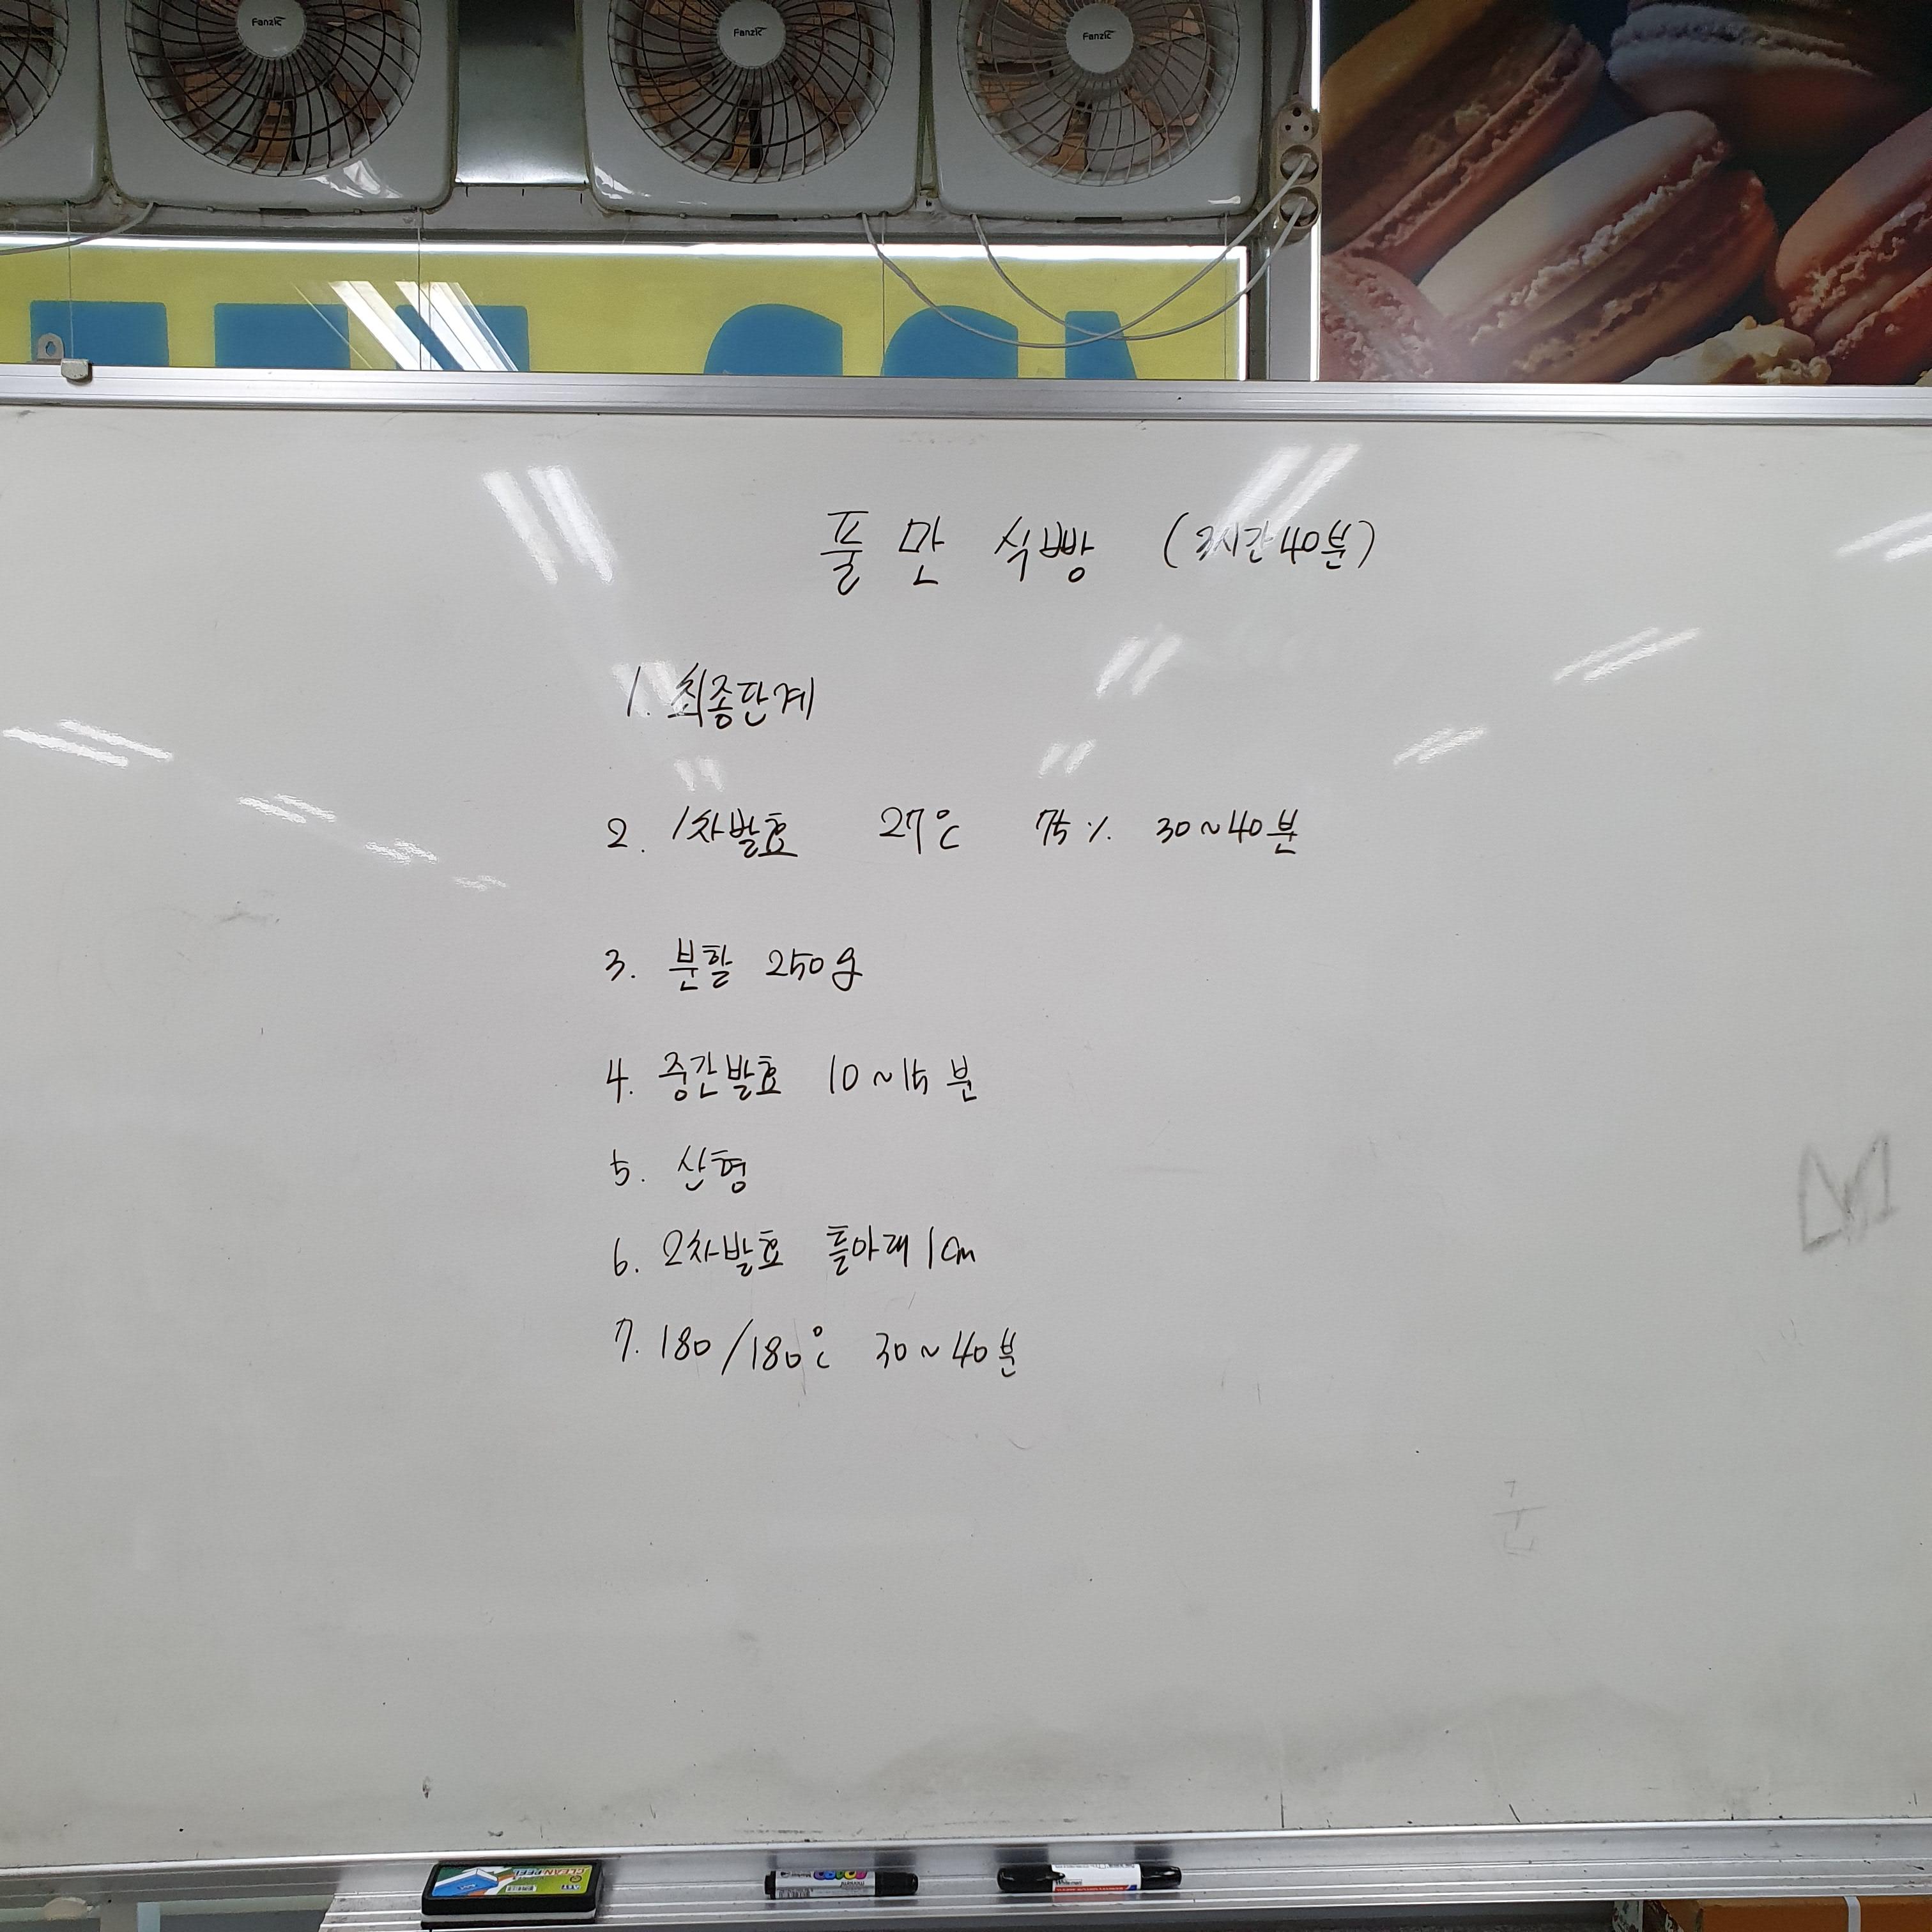 Fanzic Fanzic Fanzic
풀만 식빵 (3시간40분)
1. 최종단계
2. 1차발효 27℃ 75% 30~40분
3. 분할 250g
4. 중간발효 10~15분
5. 산형
6. 2차발효 틀아래 1cm
7. 180/180℃ 30~40분
CLEAN PEEL